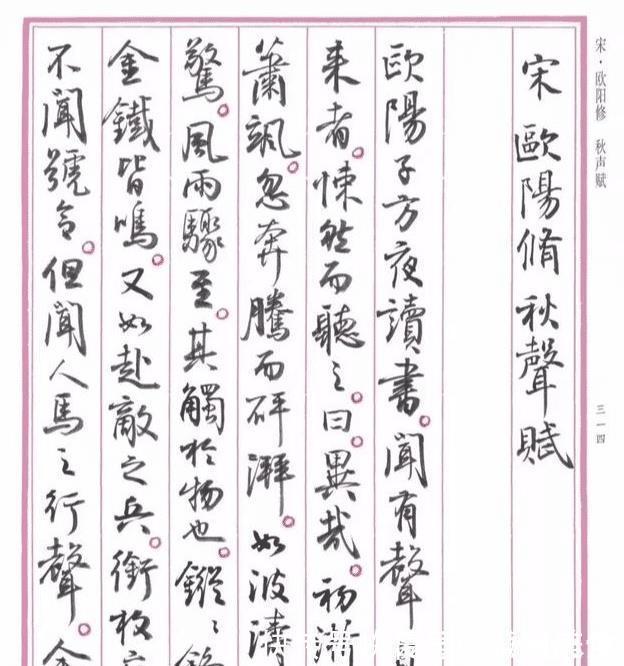 宋·欧阳修 秋声赋
三一四
宋歐陽脩秋聲賦
歐陽子方夜讀書。聞有聲
来者。悚然而聽之。曰。異哉。初
蕭颯。忽奔騰而砰湃。如波濤
驚。風雨驟至。其觸於物也。鏦〻
金鐵皆鳴。又如赴敵之兵。銜枚
不聞號令。但聞人馬之行聲。